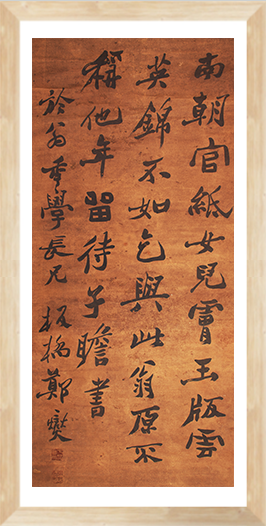 南朝官紙女兒膚玉版雲
英錦不如乞與此翁原不
稱他年留待子瞻書
於學長兄 板橋鄭燮